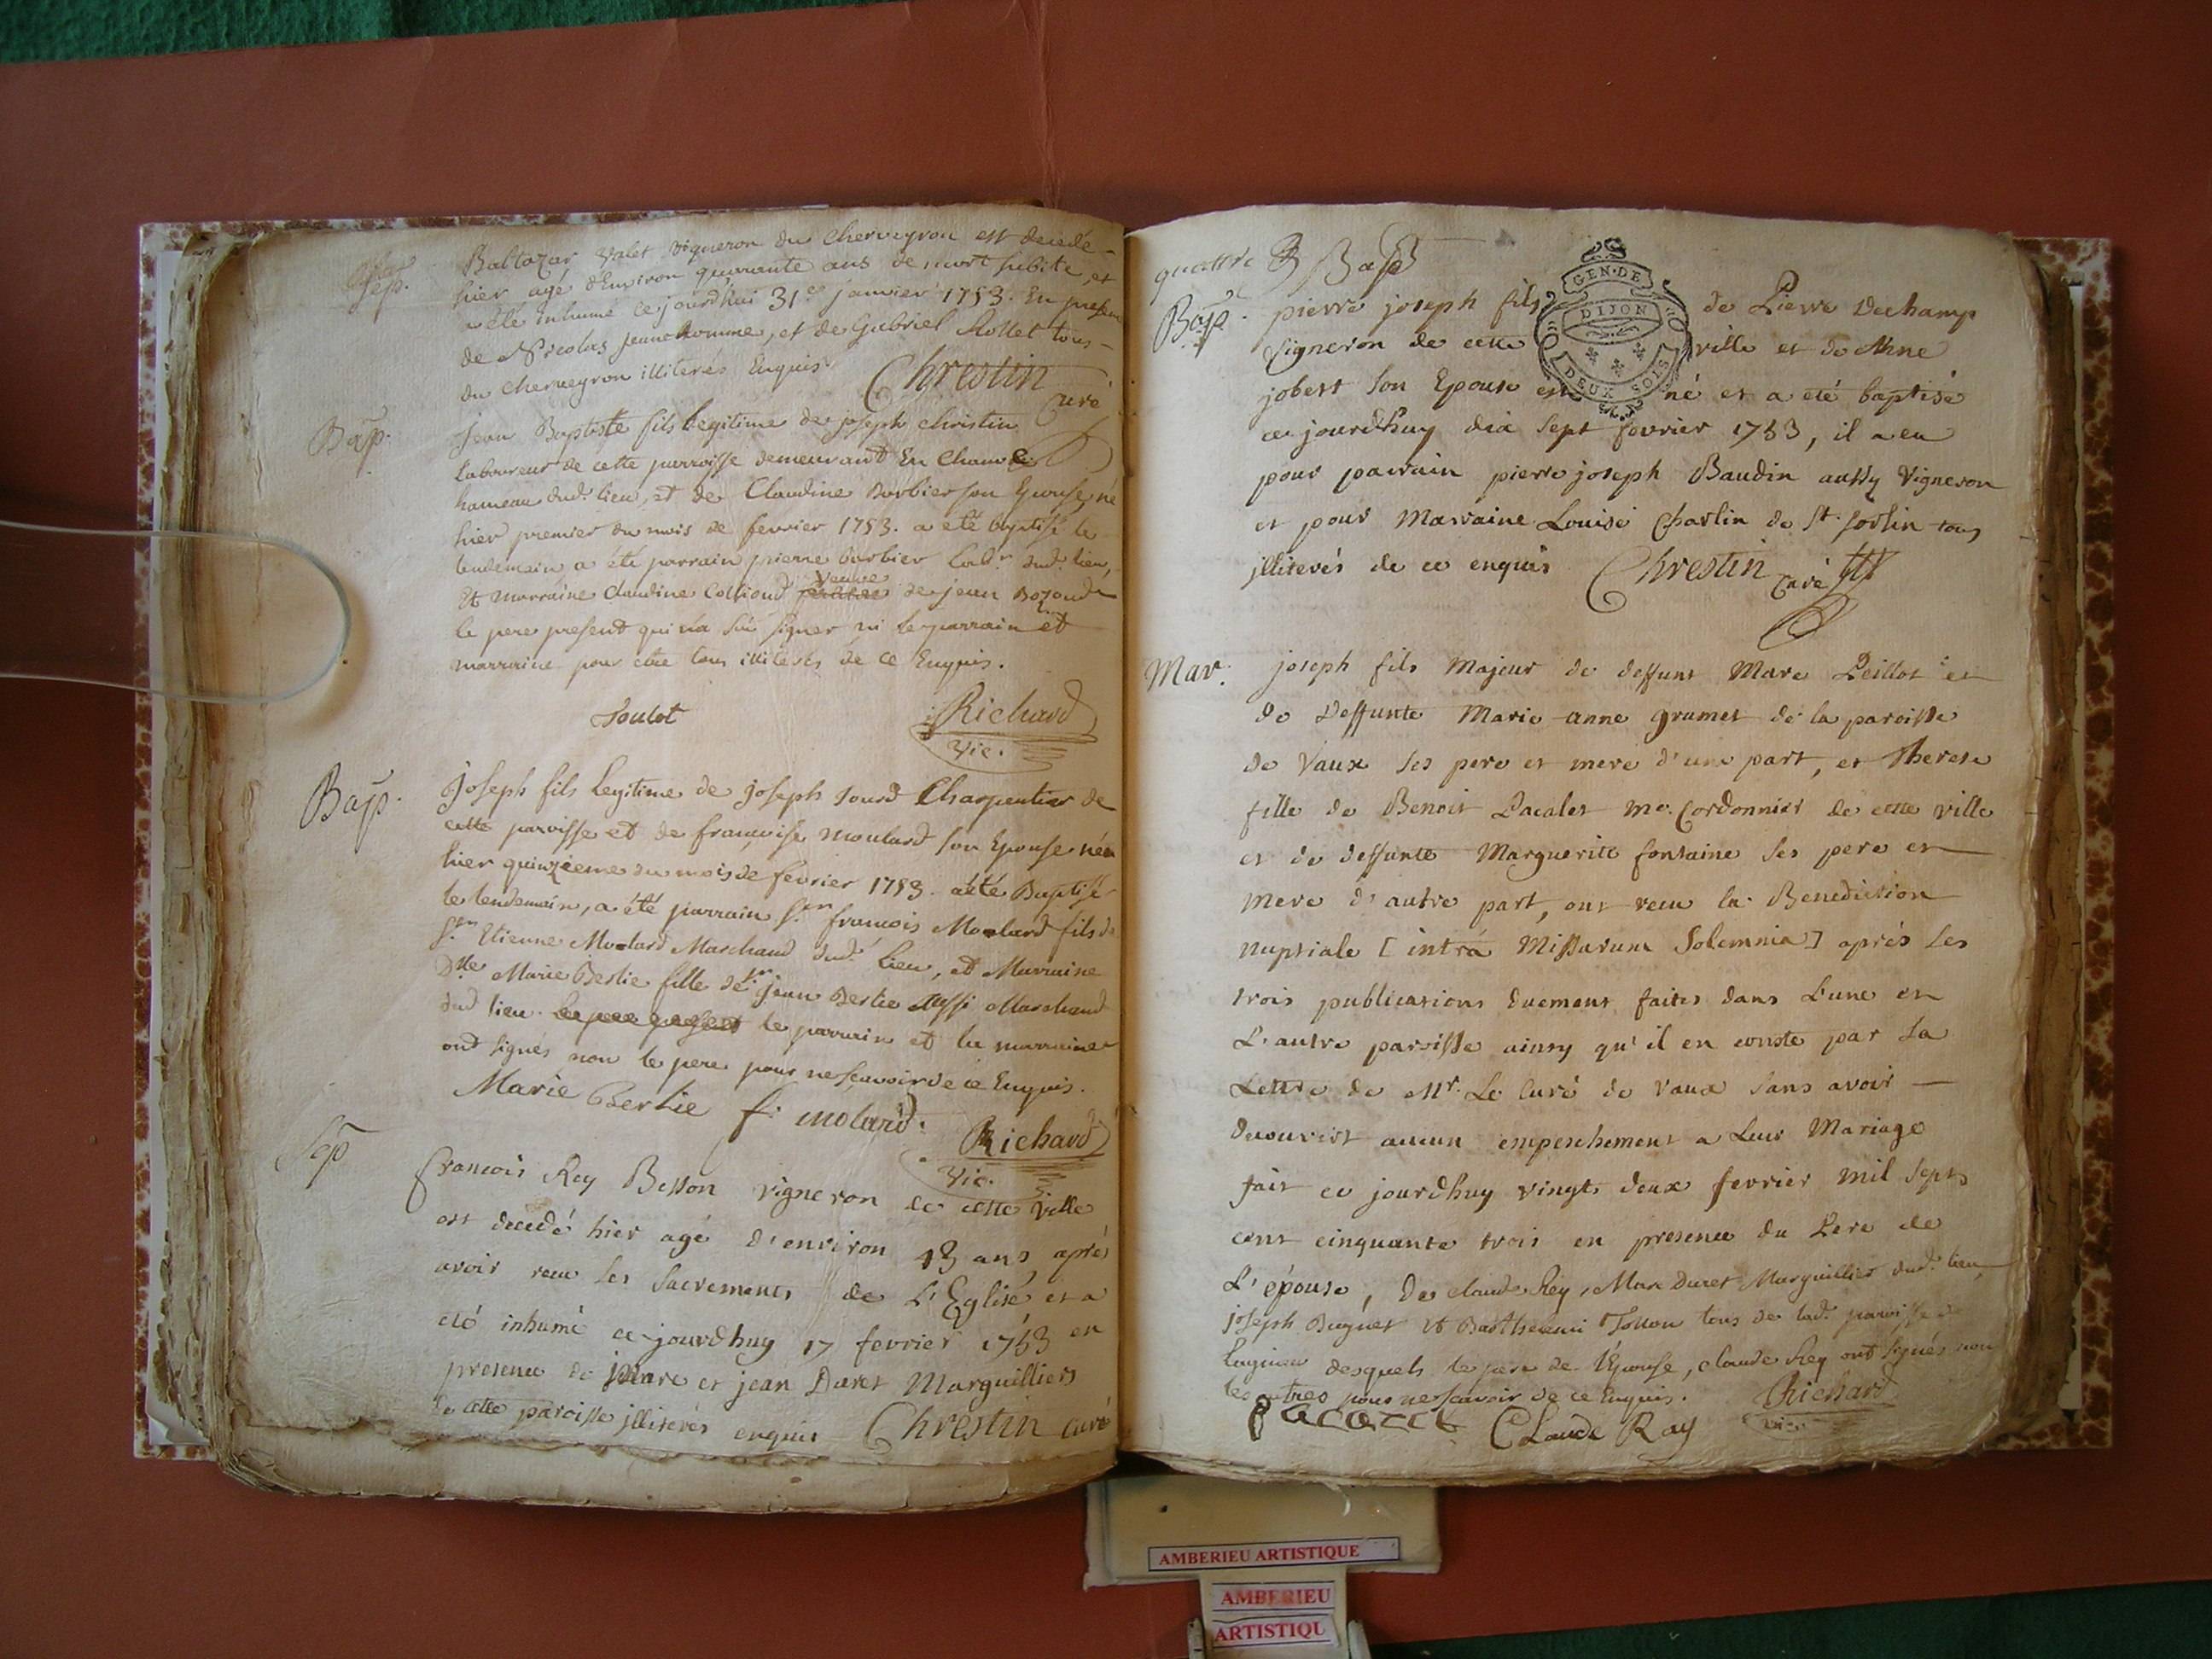 Sep.
Baltazar Valet vigneron du Cherveyron est decedé
hier agé d'Environ quarante ans de mort subite, et
a été inhumé ce jourd'hui 31e janvier 1753. En presence
de Nicolas jeanehomme, et de Gabriel Rollet tous
du Cherveyron illiterés Enquis.
Chrestin
Curé
Bap.
Jean Baptiste fils legitime de joseph christin
laboureur de cette parroisse demeurant En
hameau dud. lieu, et de Claudine Barbier son Epouse, né
hier premier du mois de fevrier 1753. a eté baptisé le
lendemain, a été parrain pierre barbier Labr. dud. lieu,
Et marraine Claudine Collioud veuve de jean Bozond
le pere present qui n'a sçu signer ni le parrain et
marraine pour etre tous illiterés de ce Enquis.
Soulot
Richard
Vic.
Bap.
Joseph fils legitime de joseph Tourd Charpentier de
cette paroisse et de francoise moulard son Epouse né
hier quinzieme du mois de fevrier 1753. a été Baptisé
le lendemain, a été parrain Sr. francois Molard fils de
Sr. Etienne Molard Marchand dud. Lieu, et Marraine
Dlle Marie Berlie fille de Sr. jean Berlie aussi Marchand
dud lieu. le pere present le parrain et la marraine
ont signés non le pere pour ne sçavoir de ce Enquis.
Marie Berlie f. molard.
Richard
Vic.
Sep
francois Rey Besson vigneron de cette ville
est decedé hier agé d'environ 43 ans, aprés
avoir recu les sacrements de L'Eglise et a
eté inhumé ce jourdhuy 17 fevrier 1753 en
presence de et jean Duret Marguilliers
de cette paroisse jlliterés enquis Chrestin curé
quattre Bap
GEN. DE
DIJON
DEUX SOLS
Bap.
pierre joseph fils de Pierre Dechamp
vigneron de cette ville et de Anne
jobert son Epouse est né et a eté baptisé
ce jourdhuy dix sept fevrier 1753, il a eu
pour parrain pierre joseph Baudin aussy vigneron
et pour Marraine Louise Charlin de St. sorlin tous
jlliterés de ce enquis Chrestin Curé
Mar.
joseph fils Majeur de deffunt Marc Peillot et
de Deffunte Marie anne grumet de la paroisse
de Vaux ses pere et mere d'une part, et Therese
fille de Benoit Pacalet me. Cordonnier de cette ville
et de deffunte Marguerite fontaine ses pere et
mere d'autre part, ont recu la Benediction
nuptiale [intrà Missarum Solemnia] aprés les
trois publications duement faites dans L'une et
L'autre paroisse ainsy qu'il en conste par la
Lettre de Mr. Le Curé de Vaux sans avoir
decouvert aucun empeschement a Leur Mariage
fait ce jourdhuy vingt deux fevrier mil sept
cent cinquante trois en presence du Pere de
L'épouse, De claude Rey, Marc Duret Marguillier dud. lieu,
joseph Bugnet et Barthelemi Tollon tous de lad. paroisse de
desquels le pere de l'Epouse, claude Rey ont signés non
les autres pour ne scavoir de ce Enquis.
Richard
vic.
Pacalet Claude Ray
AMBERIEU ARTISTIQUE
AMBERIEU
ARTISTIQU